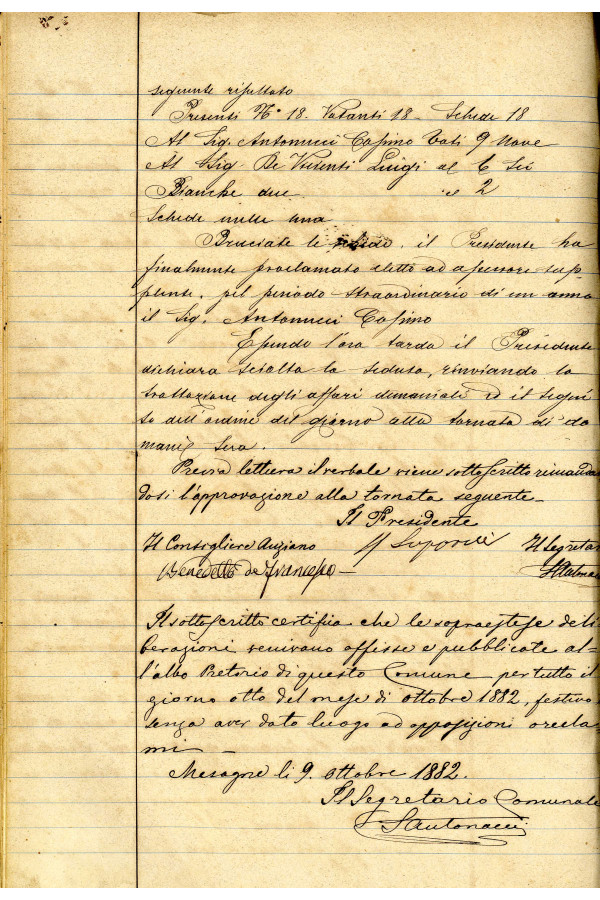 seguente risultato
Presenti N° 18. Votanti 18 - Schede 18
Al Sig. Antonucci Cosimo Voti 9 Nove
Al Sig. De Vincenti Luigi al 6 Sei
Bianche due 2
Schede nulle una
Bruciate le schede, il Presidente ha
finalmente proclamato eletto ad assessore sup-
plente, pel periodo straordinario di un anno
il Sig. Antonucci Cosimo
Essendo l'ora tarda il Presidente
dichiara sciolta la seduta, rinviando la
trattazione degli affari demaniali ed il segui
to dell'ordine del giorno alla tornata di do
mani sera.
Previa lettura il verbale viene sottoscritto rimanda
dosi l'approvazione alla tornata seguente -
Il Presidente
Il Consigliere Anziano
Il Segretar
Benedetto de Francesco -
Il sottoscritto certifica che le sopraestese deli
berazioni venivano affisse e pubblicate al-
l'albo Pretorio di questo Comune per tutto il
giorno otto del mese di ottobre 1882, festivo
senza aver dato luogo ad opposizioni o recla
mi -
Mesagne li 9. ottobre 1882.
Il Segretario Comunale
SAntonucci